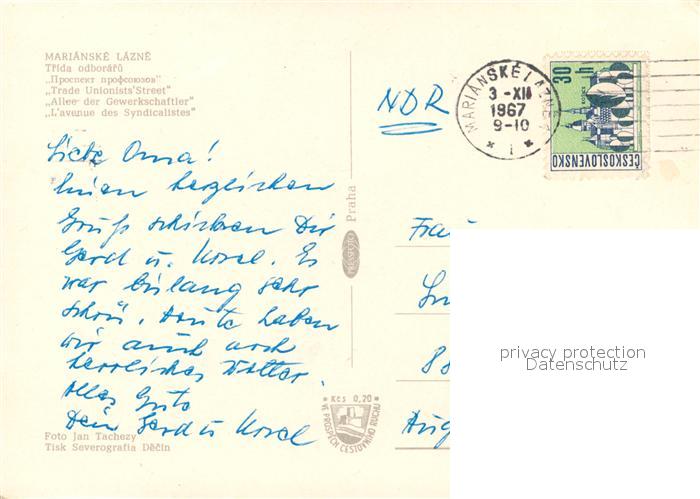 MARIÁNSKÉ LÁZNĚ
Třída odborářů
„Проспект профсоюзов"
„Trade Unionists'Street"
„Allee der Gewerkschaftler"
„L'avenue des Syndicalistes"
Liebe Oma!
Einen herzlichen
Gruß schicken Dir
Gerd u. Korel. Es
war bislang sehr
schön. Heute haben
wir auch noch
herrliches Wetter.
Alles Gute
Dein Gerd u Korel
Foto Jan Tachezy
Tisk Severografia Děčín
PRESSFOTO
Praha
Kčs 0,20
VE PROSPĚCH CESTOVNÍHO RUCHU
NDR
MARIÁNSKÉ LÁZNĚ 1
3-XII
1967
9-10
1
30 h
ČESKOSLOVENSKO
Frau
privacy protection
Datenschutz